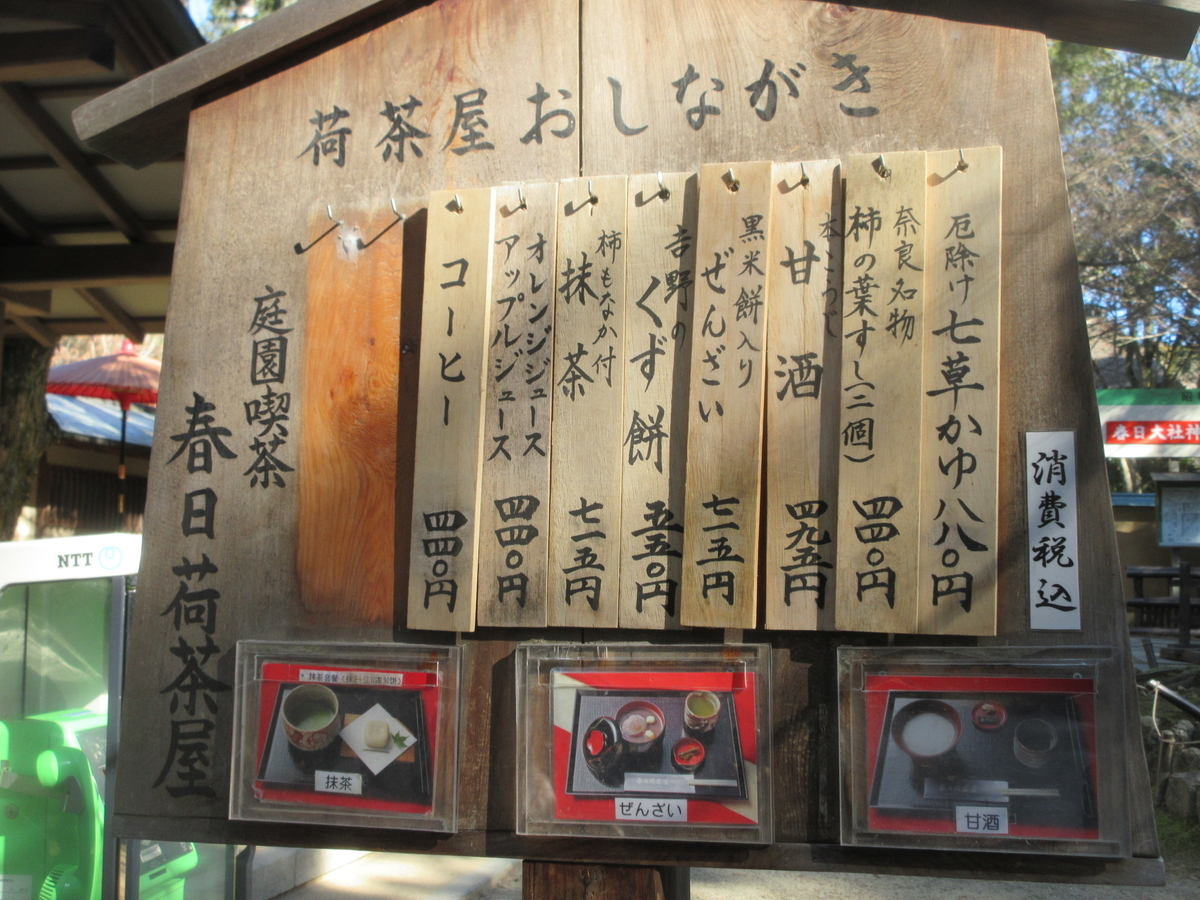 荷茶屋おしながき
消費税込
厄除け七草かゆ 八八〇円
奈良名物
柿の葉すし(二個) 四四〇円
本こうじ
甘酒 四九五円
黒米餅入り
ぜんざい 七一五円
吉野の
くず餅 五五〇円
柿もなか付
抹茶 七一五円
オレンジジュース
アップルジュース 四四〇円
コーヒー 四四〇円
庭園喫茶
春日荷茶屋
抹茶
ぜんざい
甘酒
NTT
春日大社神